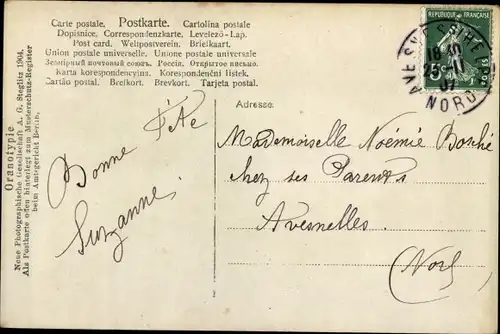 Carte postale. Postkarte. Cartolina postale
Dopisnice. Correspondenzkarte. Levelező-Lap.
Post card. Weltpostverein. Briefkaart.
Union postale universelle. Unione postale universale
Всемірный почтовый союзъ. Россія. Открытое письмо.
Karta korespondencyjna. Korespondenční listek.
Cartão postal. Brefkort. Brevkort. Tarjeta postal.
Oranotypie
Neue Photographische Gesellschaft A. G. Steglitz 1904.
Als Postkarte offen hinterlegt zum Musterschutz-Register
beim Amtsgericht Berlin.
Bonne Fête
Suzanne.
RÉPUBLIQUE FRANÇAISE
POSTES
AVESNES S HELPE
25
07
NORD
Adresse:
Mademoiselle Noémie Bosché
chez ses Parents
Avesnelles
(Nord)